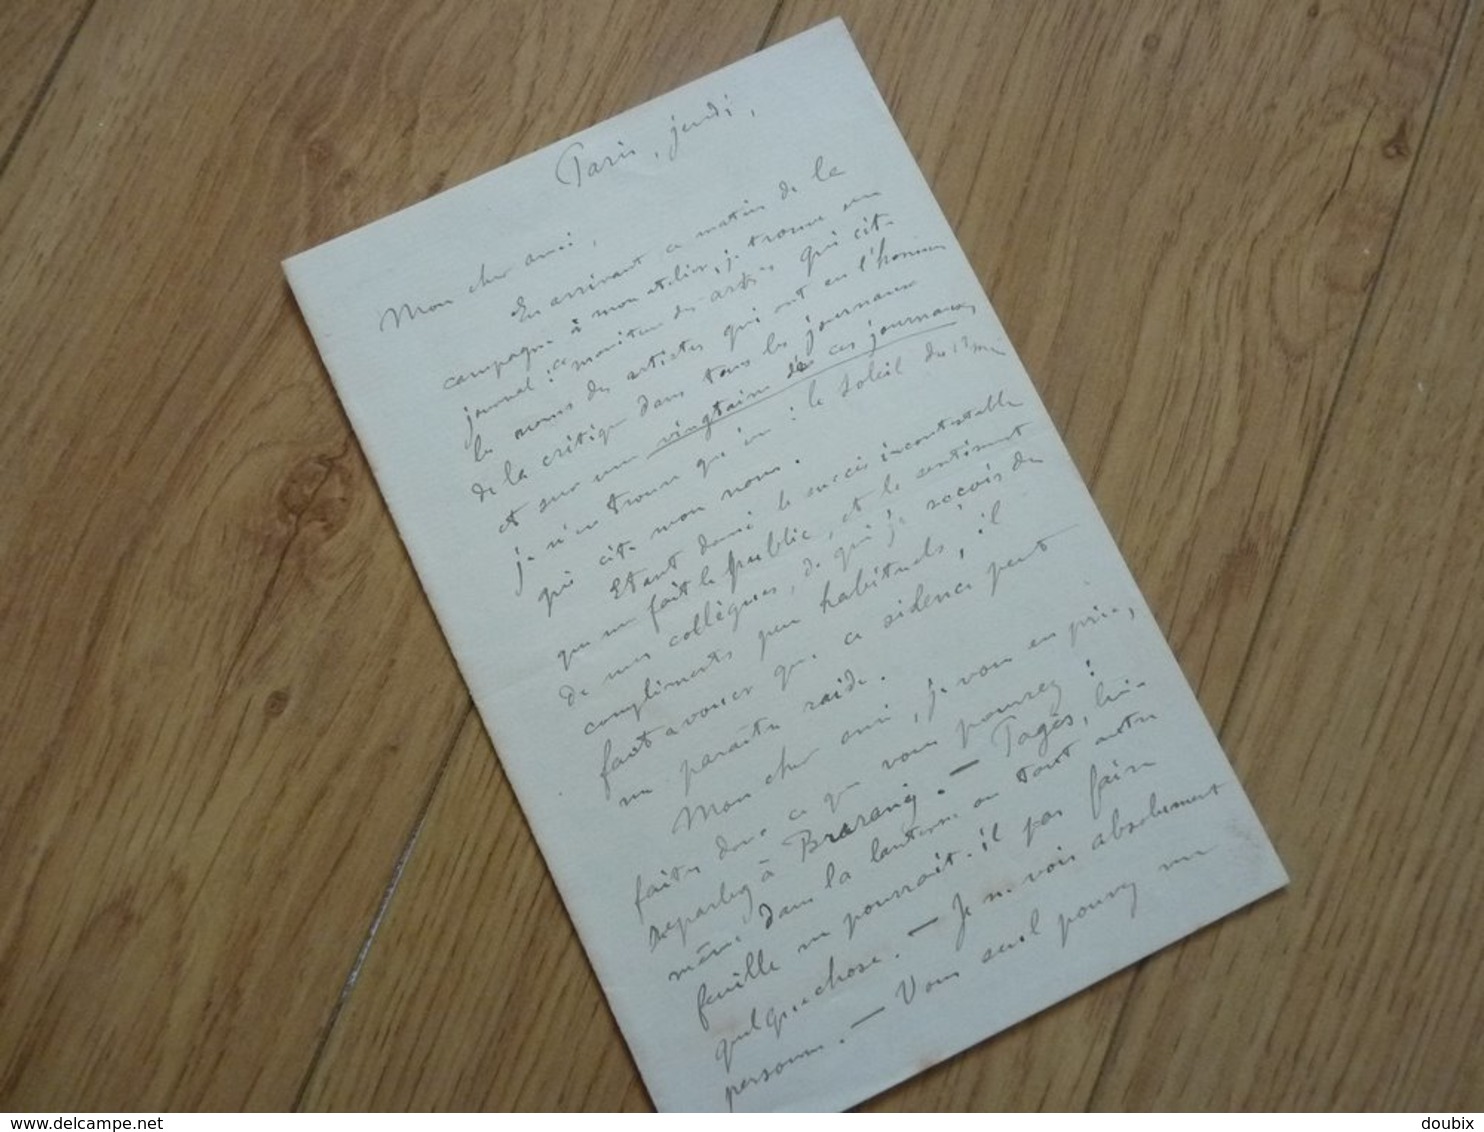 Paris, jeudi,
Mon cher ami,
En arrivant ce matin de la
campagne à mon atelier, je trouve un
journal: ce moniteur des arts qui cite
les noms des artistes qui ont eu l'honneur
de la critique dans tous les journaux
et sur une vingtaine de ces journaux
je n'en trouve qu'un: le Soleil du
qui cite mon nom.
Etant donné le succès incontestable
que me fait le public, et le sentiment
de mes collègues, de qui je reçois des
compliments peu habituels, il
faut avouer que ce sidence peut
me paraître raide.
Mon cher ami, je vous en prie,
faites donc ce que vous pourrez!
Reparlez à - Pagès, lui-
même dans la lanterne ou tout autre
feuille ne pourrait-il pas faire
quelque chose. - Je ne vois absolument
personne. - Vous seul pouvez me
delcampe.net
doubix